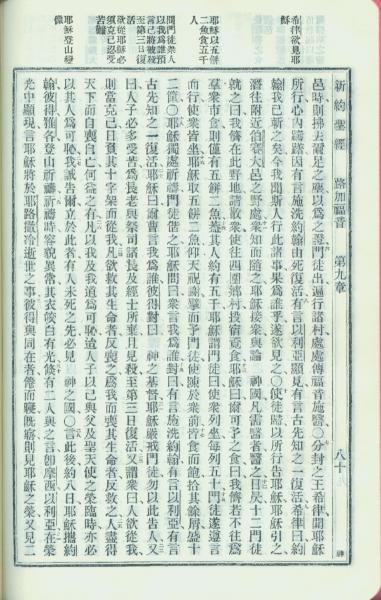 新約聖經 路加福音 第九章 八十
希律欲見耶
穌
耶穌以五餅
二魚食五千
人
問門徒衆人
以我爲誰預
言己將被殺
至第三日復
活
欲從耶穌必
須克己忍受
苦難
耶穌登山變
像
邑時則拂去爾足之塵以爲之證門徒出遍行諸村處處傳福音施醫○分封之王希律聞耶穌
所行心內躊躇因有言施洗約翰由死復活有言以利亞顯見有言古先知之一復活希律曰約
翰我已斬之矣今我聞斯人行此諸事果爲誰乎遂欲見之○使徒歸以所行告耶穌耶穌引之
潛往附近伯賽大邑之野處衆知而隨之耶穌接衆與論 神國凡需醫者醫之日昃十二門徒
就之曰我儕在此野地請散衆使往四圍鄉村投宿覓食耶穌曰爾可予之食曰我儕若不往爲
羣衆市食則僅有五餅二魚蓋其人約有五千耶穌謂門徒曰使衆列坐每列五十門徒遂遵言
而行使衆皆坐耶穌取五餅二魚仰天祝謝擘而予門徒使陳於衆前皆食而飽拾其餘屑盛十
二筐○耶穌獨處祈禱門徒偕之耶穌問曰衆言我爲誰對曰有言施洗約翰有言以利亞有言
古先知之一復活耶穌曰爾曹言我爲誰彼得對曰 神之基督耶穌嚴戒門徒勿以此告人又
曰人子必多受苦爲長老與祭司諸長及經士所棄且見殺至第三日復活又謂衆曰人欲從我
則當克己日負其十字架而從我凡欲救其生命者反喪之爲我而喪其生命者反救之人盡得
天下而自喪自亡何益之有凡以我及我道爲可恥迨人子以己與父及聖天使之榮臨時亦必
以其人爲可恥我誠告爾立於此者有人未死之先必見 神之國○言此後約八日耶穌攜約
翰彼得雅各登山祈禱祈禱時容貌異常其衣皎白有光倏有二人與之言卽摩西以利亞在榮
光中顯現言耶穌將於耶路撒冷逝世之事彼得與同在者倦而寢旣寤則見耶穌之榮又見二